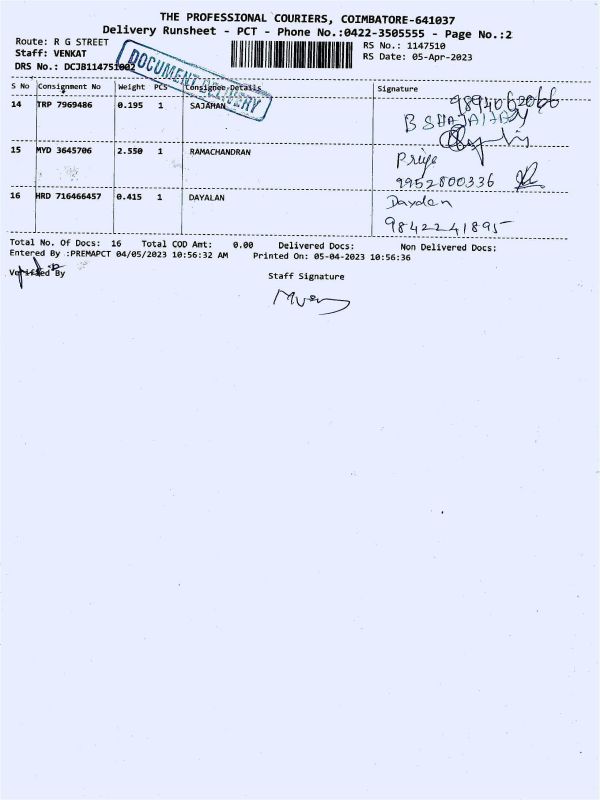 THE PROFESSIONAL COURIERS, COIMBATORE-641037
Delivery Runsheet - PCT - Phone No.:0422-3505555 - Page No.:2
Route: R G STREET
RS No.: 1147510
Staff: VENKAT
RS Date: 05-Apr-2023
DRS No.: DCJB114751002
DOCUMENT DELIVERY
S No Consignment No Weight PCS Consignee Details Signature
14 TRP 7969486 0.195 1 SAJAHAN
9894062066
15 MYD 3645706 2.550 1 RAMACHANDRAN
Priya
9952800336
16 HRD 716466457 0.415 1 DAYALAN
Dayalan
9842241895
Total No. Of Docs: 16 Total COD Amt: 0.00 Delivered Docs: Non Delivered Docs:
Entered By :PREMAPCT 04/05/2023 10:56:32 AM Printed On: 05-04-2023 10:56:36
Verified By
Staff Signature